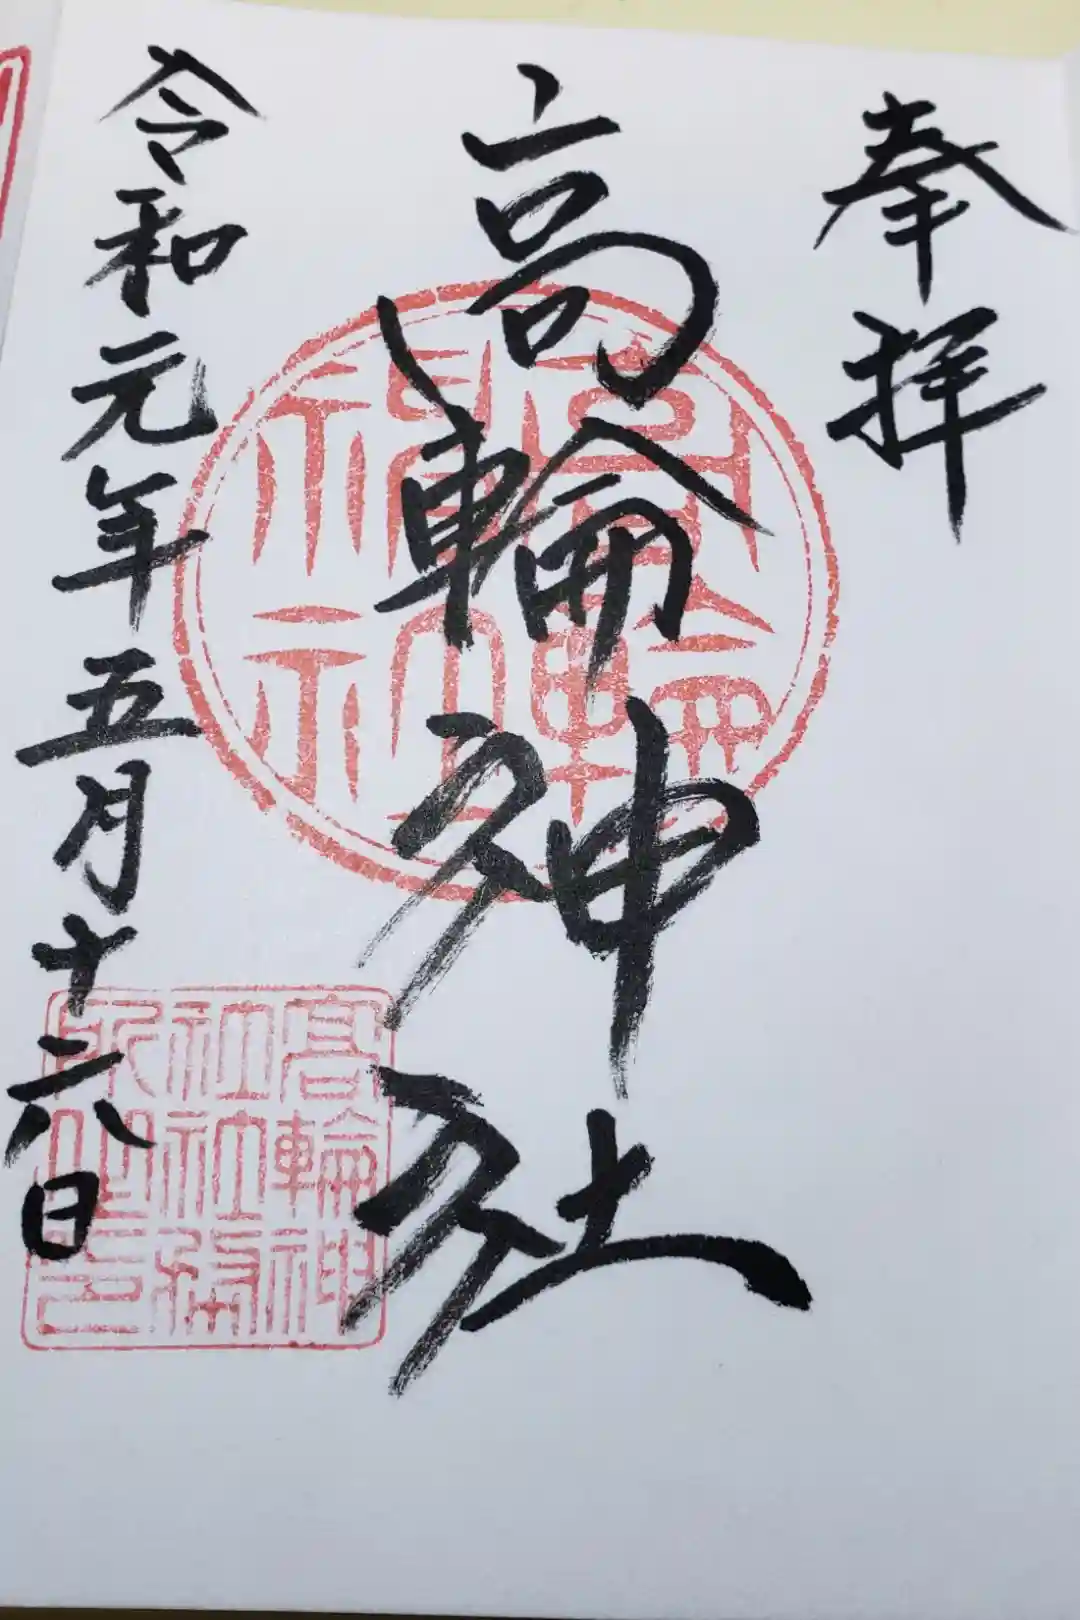 奉拝
高輪神社
令和元年五月十六日
高輪
神社
高輪神
社社務
所之印